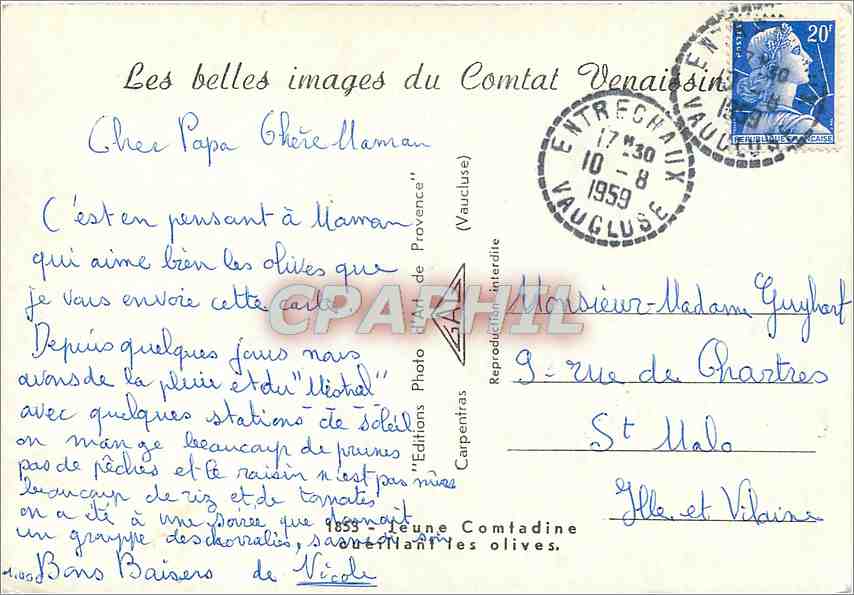 Les belles images du Comtat Venaissin
20F
POSTES
REPUBLIQUE FRANÇAISE
ENTRECHAUX
17 H 30
10 - 8
1959
VAUCLUSE
Cher Papa Chère Maman
C'est en pensant à Maman
qui aime bien les olives que
je vous envoie cette carte
Depuis quelques jours nous
avons de la pluie et du "Mistral"
avec quelques stations de soleil
on mange beaucoup de prunes
pas de pêches et le raisin n'est pas mûre
beaucoup de riz et de tomates
on a été à une soirée que donnait
un grappe des chorralies, samedi soir
Bons Baisers de Nicole
"Editions Photo d'Art de Provence"
Carpentras (Vaucluse)
Reproduction interdite
CPARHIL
Monsieur-Madame Guyhart
9 rue de Chartres
St Malo
Ille et Vilaine
1855 - Jeune Comtadine
cueillant les olives.